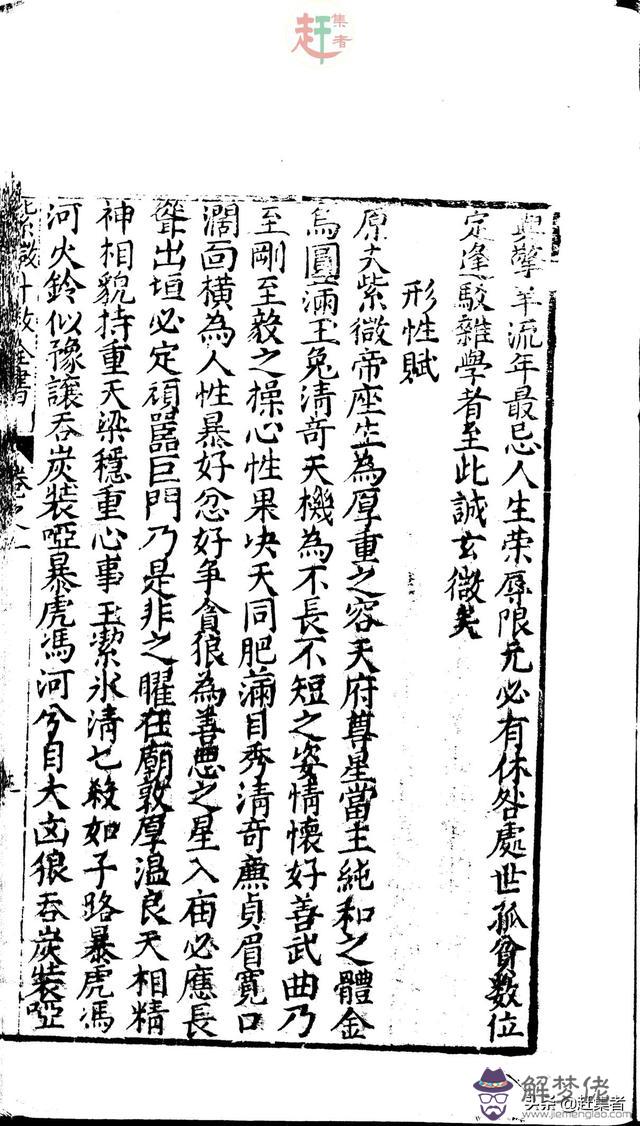 赶集者
與擎羊流年最忌人生荣辱限元必有休咎處世孤貧數位
定逢駁雜學者至此誠玄微矣
形性賦
原夫紫微帝座生為厚重之容天府尊星當主純和之體金
烏圓滿玉兔清奇天機為不長不短之姿情懷好善武曲乃
至剛至毅之操心性果決天同肥滿目秀清奇廉貞眉寬口
濶面橫為人性暴好忿好争貪狼為善惡之星入庙必應長
聳出垣必定頑嚚巨門乃是非之曜在廟敦厚温良天相精
神相貌持重天梁穩重心事玉潔氷清七殺如子路暴虎馮
河火鈴似豫讓吞炭裝啞暴虎馮河兮目大凶狼吞炭裝啞
紫微斗数全書 卷之一
解梦佬
www.jiemenglao.com
头条@赶集者